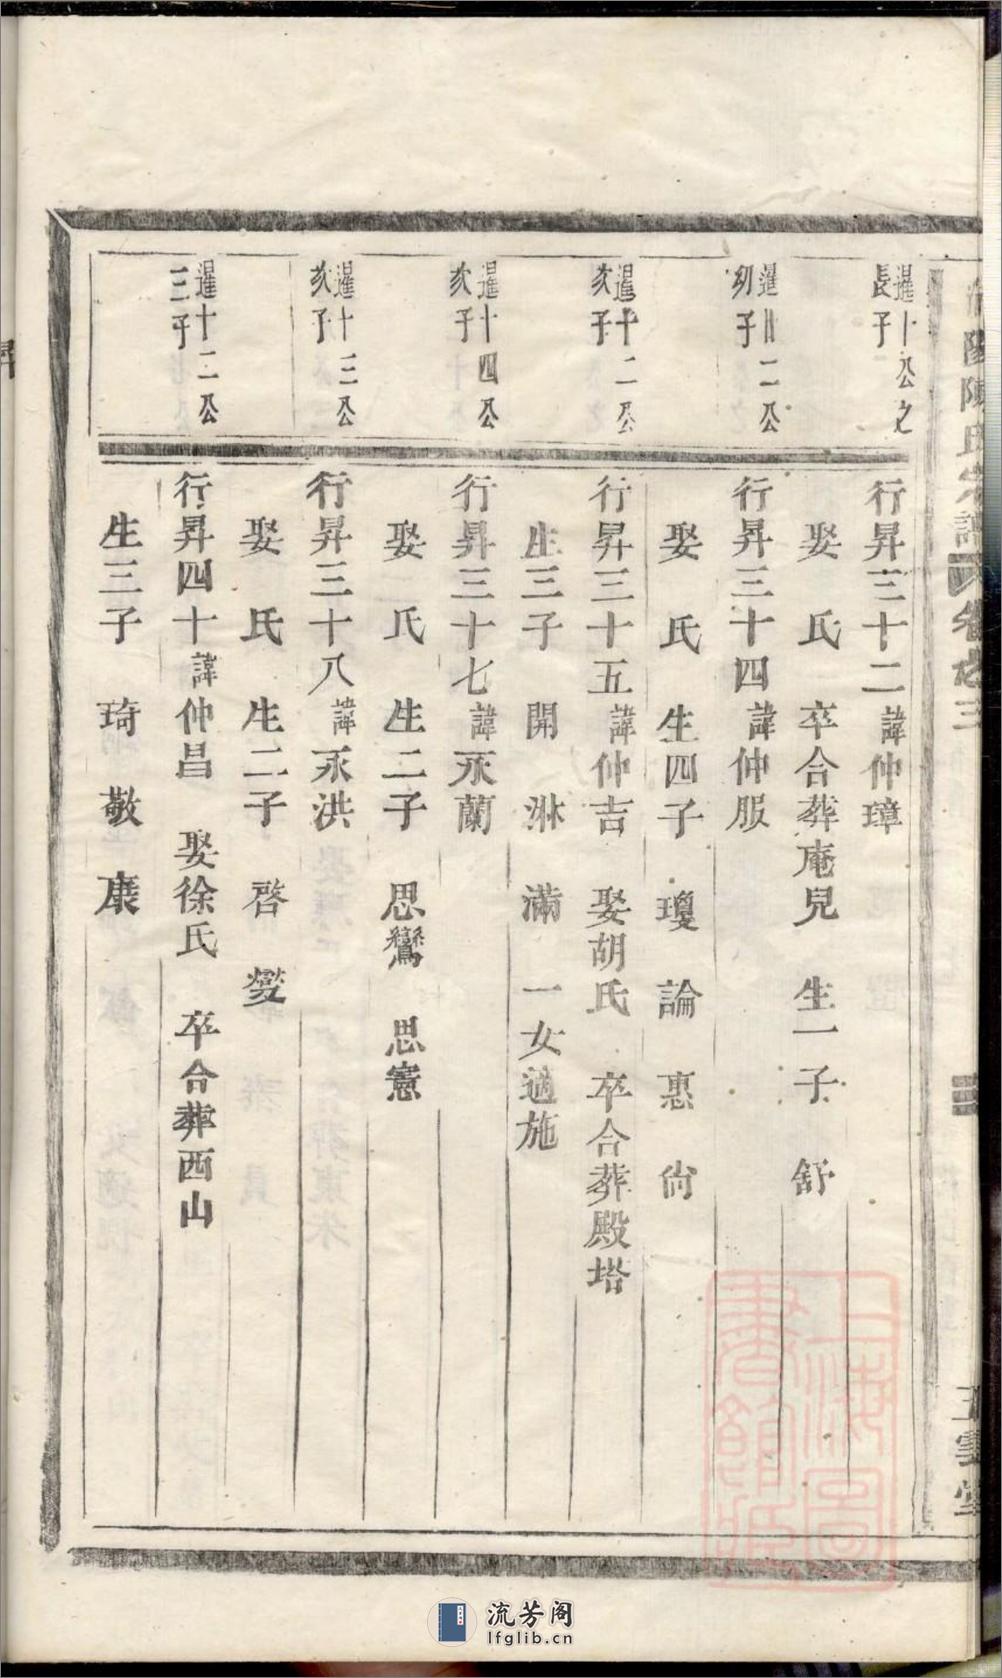 陽陳氏宗譜
卷之三
五雲堂
暹十公之
長子
行昇三十二諱仲璋
娶 氏 卒合葬庵兒 生一子 舒
暹卅二公
列子
行昇三十四諱仲服
娶 氏 生四子 瓊 論 惠 尙
暹十二公
次子
行昇三十五諱仲吉 娶胡氏 卒合葬殿塔
生三子 開 淋 滿 一女適施
暹十四公
次子
行昇三十七諱永蘭
娶 氏 生二子 思鸞 思憲
暹十三公
次子
行昇三十八諱永洪
娶 氏 生二子 啓 燮
暹十二公
三子
行昇四十諱仲昌 娶徐氏 卒合葬西山
生三子 琦 敬 康
昇
上海圖書館藏
流芳阁
lfglib.cn